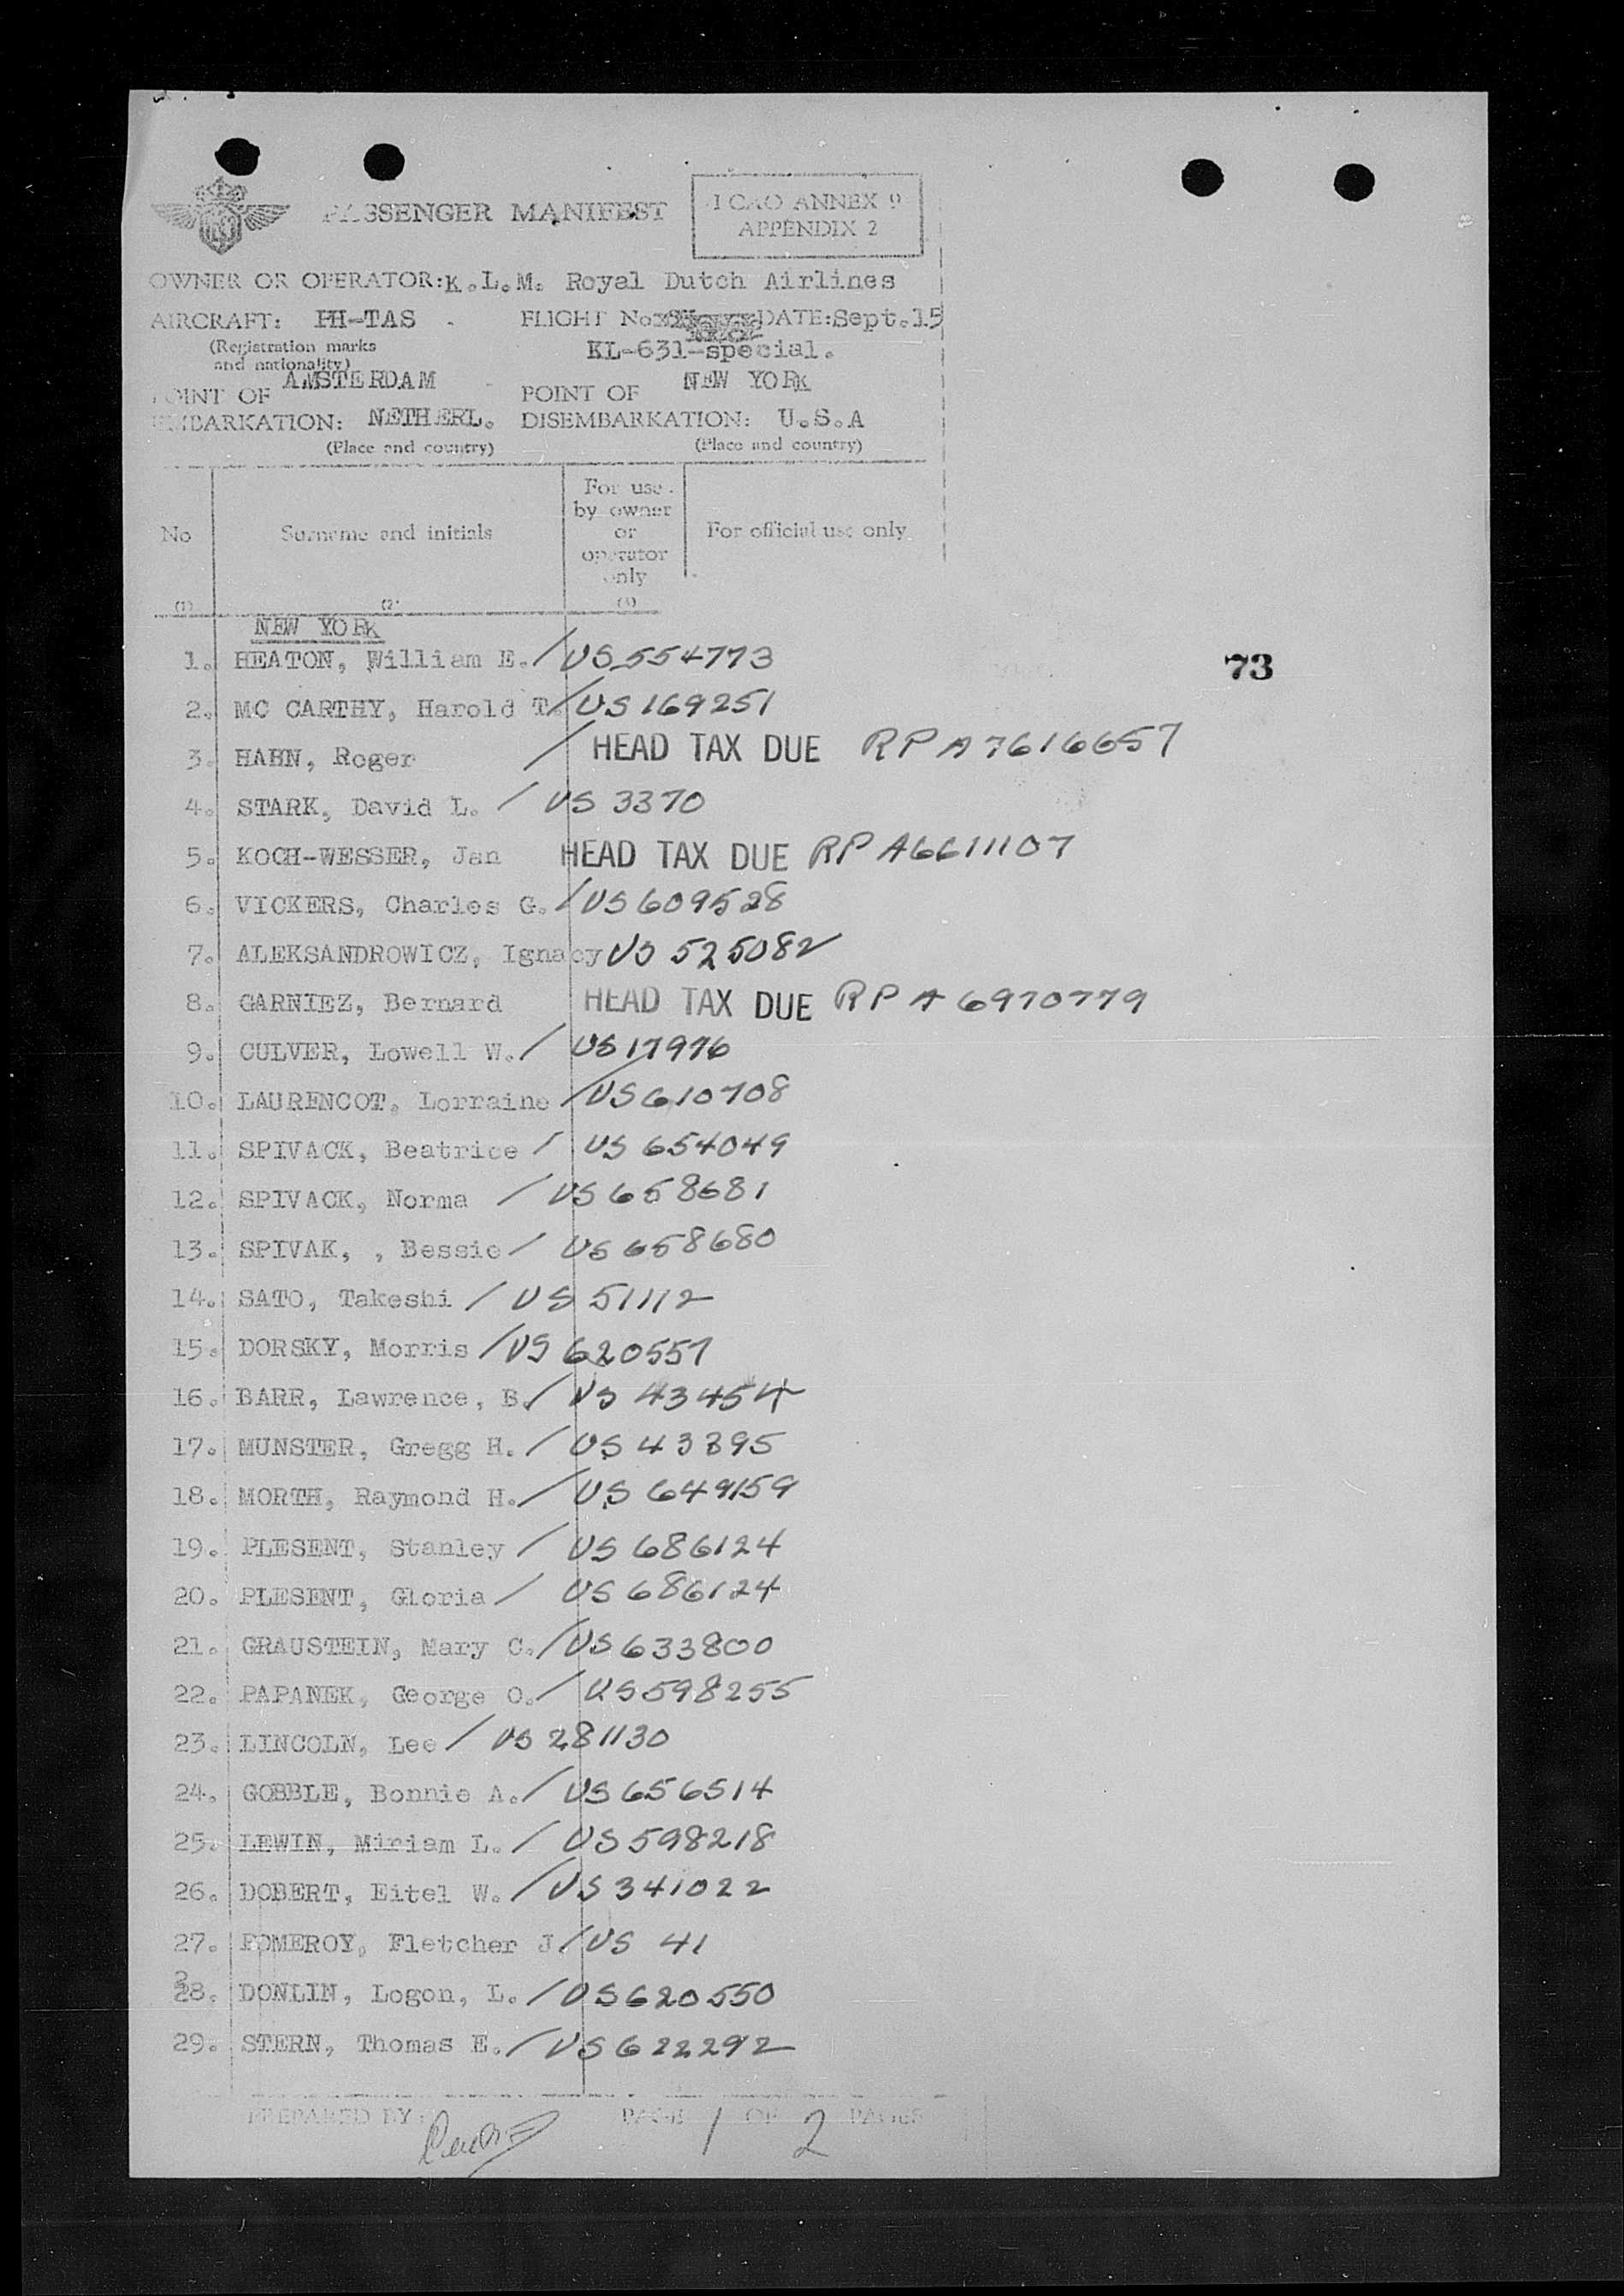 PASSENGER MANIFEST
I CAO ANNEX 9
APPENDIX 2
OWNER OR OPERATOR: K.L.M. Royal Dutch Airlines
AIRCRAFT: PH-TAS FLIGHT No: DATE: Sept.15
(Registration marks
and nationality)
KL-631-special.
POINT OF AMSTERDAM POINT OF NEW YORK
EMBARKATION: NETHERL. DISEMBARKATION: U.S.A
(Place and country) (Place and country)
No Surname and initials For use by owner or operator only For official use only
(1) (2) (3)
NEW YORK
73
1. HEATON, William E. / US 554773
2. MC CARTHY, Harold T. / US 169251
3. HAHN, Roger / HEAD TAX DUE RP A7616657
4. STARK, David L. / US 3370
5. KOCH-WESSER, Jan HEAD TAX DUE RP A6611107
6. VICKERS, Charles G. / US 609528
7. ALEKSANDROWICZ, Ignacy US 525082
8. GARNIEZ, Bernard HEAD TAX DUE RP A 6970779
9. CULVER, Lowell W. / US 17976
10. LAURENCOT, Lorraine / US 610708
11. SPIVACK, Beatrice / US 654049
12. SPIVACK, Norma / US 658681
13. SPIVAK, , Bessie / US 658680
14. SATO, Takeshi / US 51112
15. DORSKY, Morris / US 620557
16. BARR, Lawrence, B. / US 43454
17. MUNSTER, Gregg H. / US 43395
18. MORTH, Raymond H. / US 649159
19. PLESENT, Stanley / US 686124
20. PLESENT, Gloria / US 686124
21. GRAUSTEIN, Mary C. / US 633800
22. PAPANEK, George O. / US 598255
23. LINCOLN, Lee / US 281130
24. GOBBLE, Bonnie A. / US 656514
25. LEWIN, Miriam L. / US 598218
26. DOBERT, Eitel W. / US 341022
27. POMEROY, Fletcher J. / US 41
28. DONLIN, Logon, L. / US 620550
29. STERN, Thomas E. / US 622292
PREPARED BY: PAGE 1 OF 2 PAGES